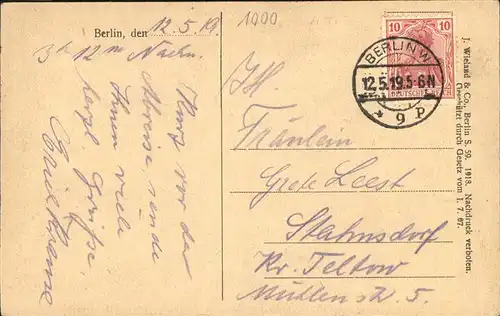 1000
Berlin, den 12.5.19.
3h 12m Nachm.
Kurz vor der
Abreise sende
Ihnen viele
herzl. Grüsse
Erich Krause
10 10
DEUTSCHES
BERLIN W
12.5.19.5-6N
* 9 p
Frl.
Fräulein
Grete Leest
Stahnsdorf
Kr. Teltow
Mühlenstr. 5.
J. Wieland & Co., Berlin S. 59. 1918. Nachdruck verboten.
Geschützt durch Gesetz vom 1. 7. 07.